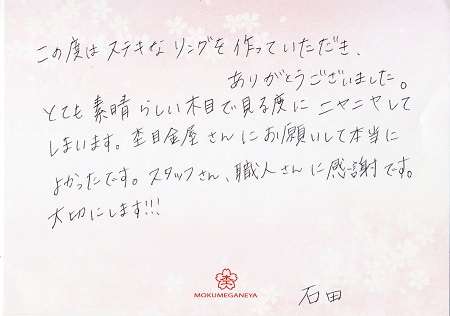 この度はステキなリングを作っていただき、
ありがとうございました。
とても素晴らしい木目で見る度にニヤニヤして
しまいます。杢目金屋さんにお願いして本当に
よかったです。スタッフさん、職人さんに感謝です。
大切にします!!!
杢
MOKUMEGANEYA
石田